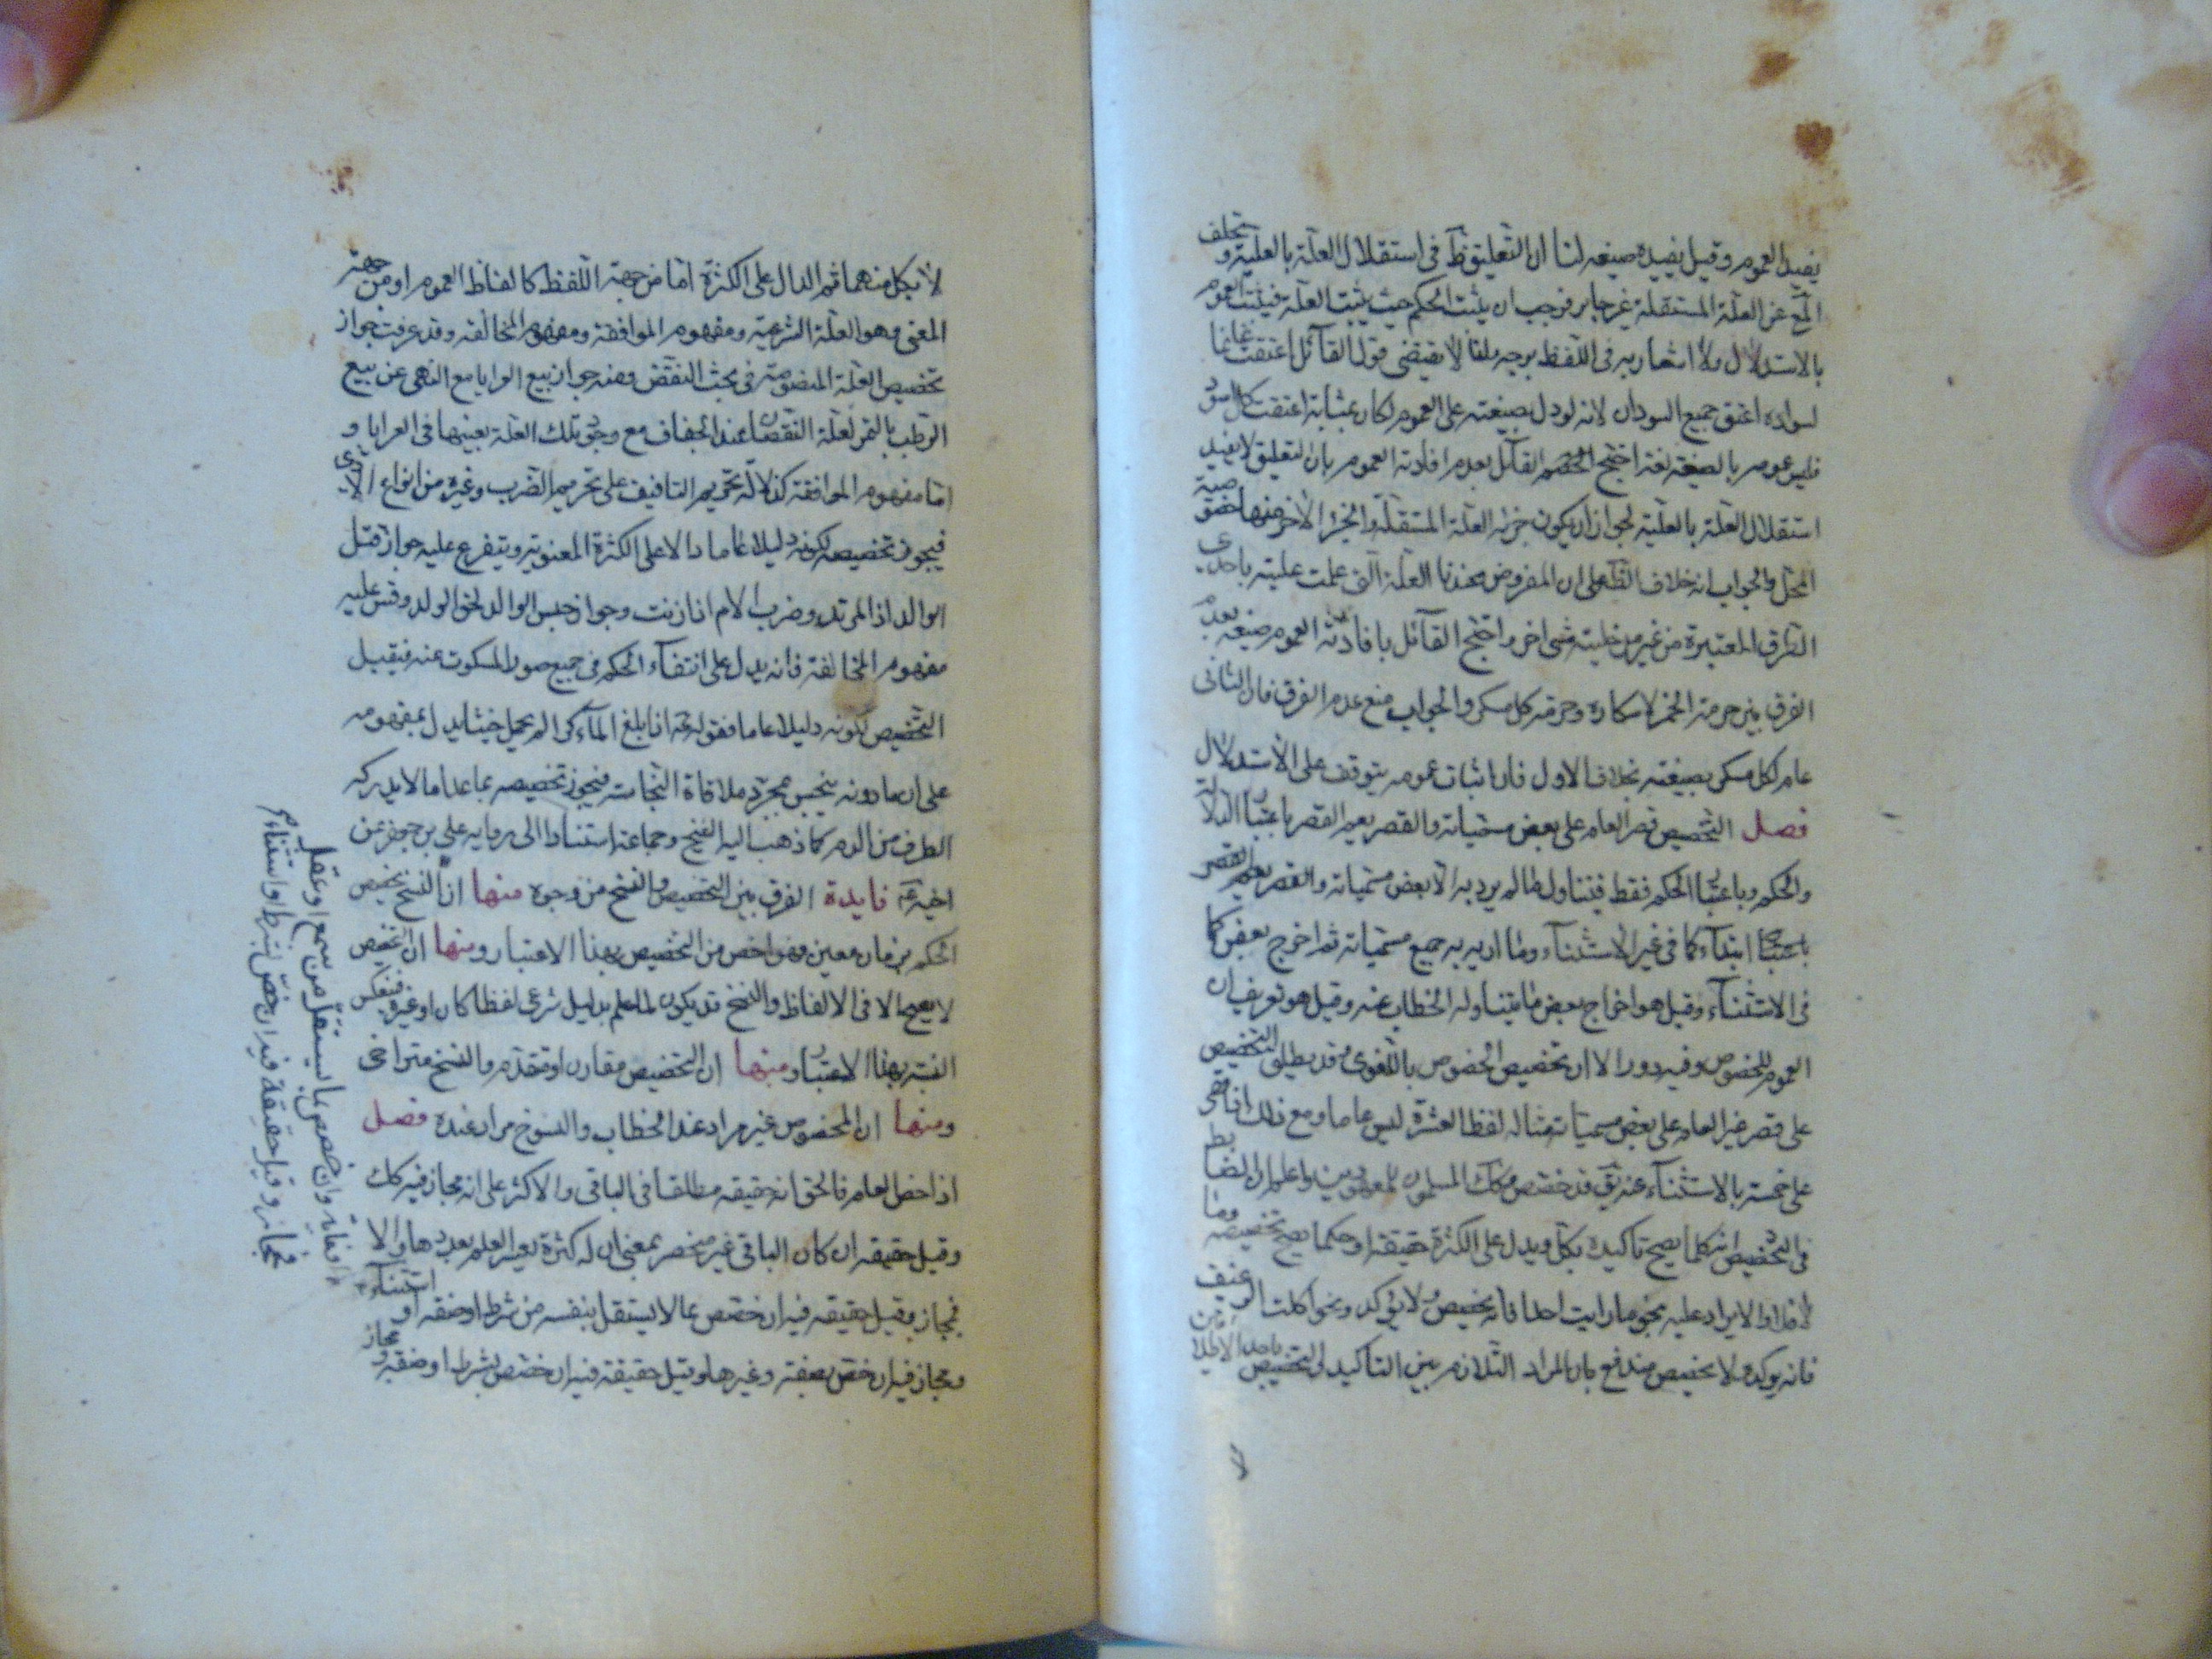 يفيد العموم وقيل يفيده صيغه لنا ان التعليق ظ في استقلال العلة بالعلية و تخلف
المع عن العلة المستقلة غير جايز فوجب ان يثبت الحكم حيث يثبت العلة فيثبت العموم
بالاستدلال ولا اشعار به في اللفظ بوجه ولهذا لا يقتضى قول القائل اعتقت غانما
لسواده اعتق جميع السودان لانه لو دل بصيغته على العموم لكان بمثابة اعتقت كل اسود
فليس عموم بالصيغة لغة احتج الخصم القائل بعدم افادته العموم بان التعليق لا يفيد
استقلال العلة بالعلية لجواز ان يكون جزء العلة المستقلة والجزء الاخر منها خصوصية
المحل والجواب انه خلاف الظ على ان المفروض عندنا العلة التى علمت علیته باحدى
الطرق المعتبرة من غير مدخلية شئ اخر واحتج القائل بافادته العموم صيغه بعدم
الفرق بين حرمة الخمر لاسكاره وحرمة كل مسكر والجواب منع عدم الفرق فان الثانى
عام لكل مسكر بصيغته بخلاف الاول فان اثبات عمومه يتوقف على الاستدلال
فصل التخصيص قصر العام على بعض مسمياته والقصر يعم القصر باعتبار الدلالة
والحكم وباعتبار الحكم فقط فيتناول ما لم يرد به الا بعض مسمياته والقصر يعم القصر
ابتداء كما في غير الاستثناء وما اريد به جميع مسمياته ثم اخرج بعض كما
في الاستثناء وقيل هو اخراج بعض ما يتناوله الخطاب عنه وقيل هو تعريف ان
العموم للخصوص وفيه دور الا ان تخصيص الخصوص باللغوى وقد يطلق التخصيص
على قصر غير العام على بعض مسمياته مثاله لفظ العشرة ليس عاما ومع ذلك اذا قصر
على خمسة بالاستثناء عنه يق قد خصص وكك المسلمون للمعهودين واعلم ان الضابط
في التخصيص ان كلما يصح تاكيده بكل ويدل على الكثرة حقيقة او حكما يصح تخصيصه وما
لا فلا والايراد عليه بنحو ما رايت احدا فانه يخصص ولا يؤكد ونحو اكلت الرغيف
فانه يؤكد ولا يخصص مندفع بان المراد التلازم بين التاكيد والتخصيص
لا
لا بكل منهما ثم الدال على الكثرة اما من جهة اللفظ كالفاظ العموم او من جهة
المعنى وهو العلة الشرعية ومفهوم الموافقة ومفهوم المخالفه وقد عرفت جواز
تخصيص العلة المنصوصة في بحث النقض ومنه جواز بيع العرايا مع النهى عن بيع
الرطب بالتمر لعلة النقصان عند الجفاف مع وجود تلك العلة بعينها في العرايا و
اما مفهوم الموافقة كدلالة تحريم التافيف على تحريم الضرب وغيره من انواع الاذى
فيجوز تخصيصه لكونه دليلا عاما دالا على الكثرة المعنوية ويتفرع عليه جواز قتل
الوالد اذا ارتد وضرب الام اذا زنت وجواز حبس الوالد لحق الولد وقس عليه
مفهوم المخالفة فانه يدل على انتفاء الحكم في جميع صور المسكوت عنه فيقبل
التخصيص لكونه دليلا عاما فقوله ع اذا بلغ الماء كرا لم يحمل خبثا يدل بمفهومه
على ان ما دونه ينجس بمجرد ملاقاة النجاسة فيجوز تخصيصه بما عدا ما لا يدركه
الطرف من الدم كما ذهب اليه الشيخ وجماعة استنادا الى رواية علي بن جعفر عن
اخيه ع فايدة الفرق بين التخصيص والنسخ من وجوه منها ان النسخ تخصيص
الحكم بزمان معين وهو اخص من التخصيص بهذا الاعتبار ومنها ان التخصيص
لا يصح الا في الالفاظ والنسخ قد يكون لما علم بدليل شرعى لفظا كان او غيره فينعكس
النسبة بهذا الاعتبار ومنها ان التخصيص مقارن او متقدم والنسخ متراخى
ومنها ان المخصوص غير مراد عند الخطاب والمنسوخ مراد عنده فصل
اذا خص العام فالحق انه حقيقه مطلقا في الباقى والاكثر على انه مجاز فيه كك
وقيل حقيقه ان كان الباقى غير منحصر بمعنى ان له كثرة يعسر العلم بعددها والا
فمجاز وقيل حقيقه فيه ان خصص بما لا يستقل بنفسه من شرط او صفة او استثناء
ومجاز فيه ان خص بصفة وغيرها وقيل حقيقة فيه ان خصص بشرط او صفة و مجاز
او غاية وان خصص بما يستقل من سمع او عقل
فمجاز وقيل حقيقة فيه ان خص بشرط او استثناء